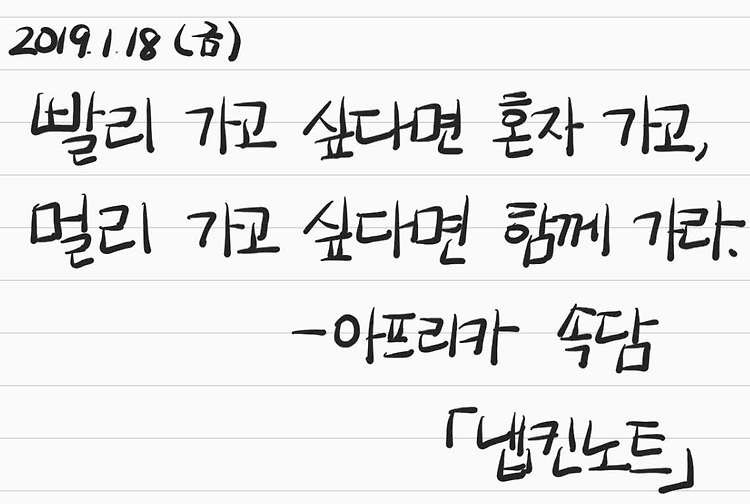 2019.1.18 (금)
빨리 가고 싶다면 혼자 가고,
멀리 가고 싶다면 함께 가라.
-아프리카 속담
「냅킨노트」